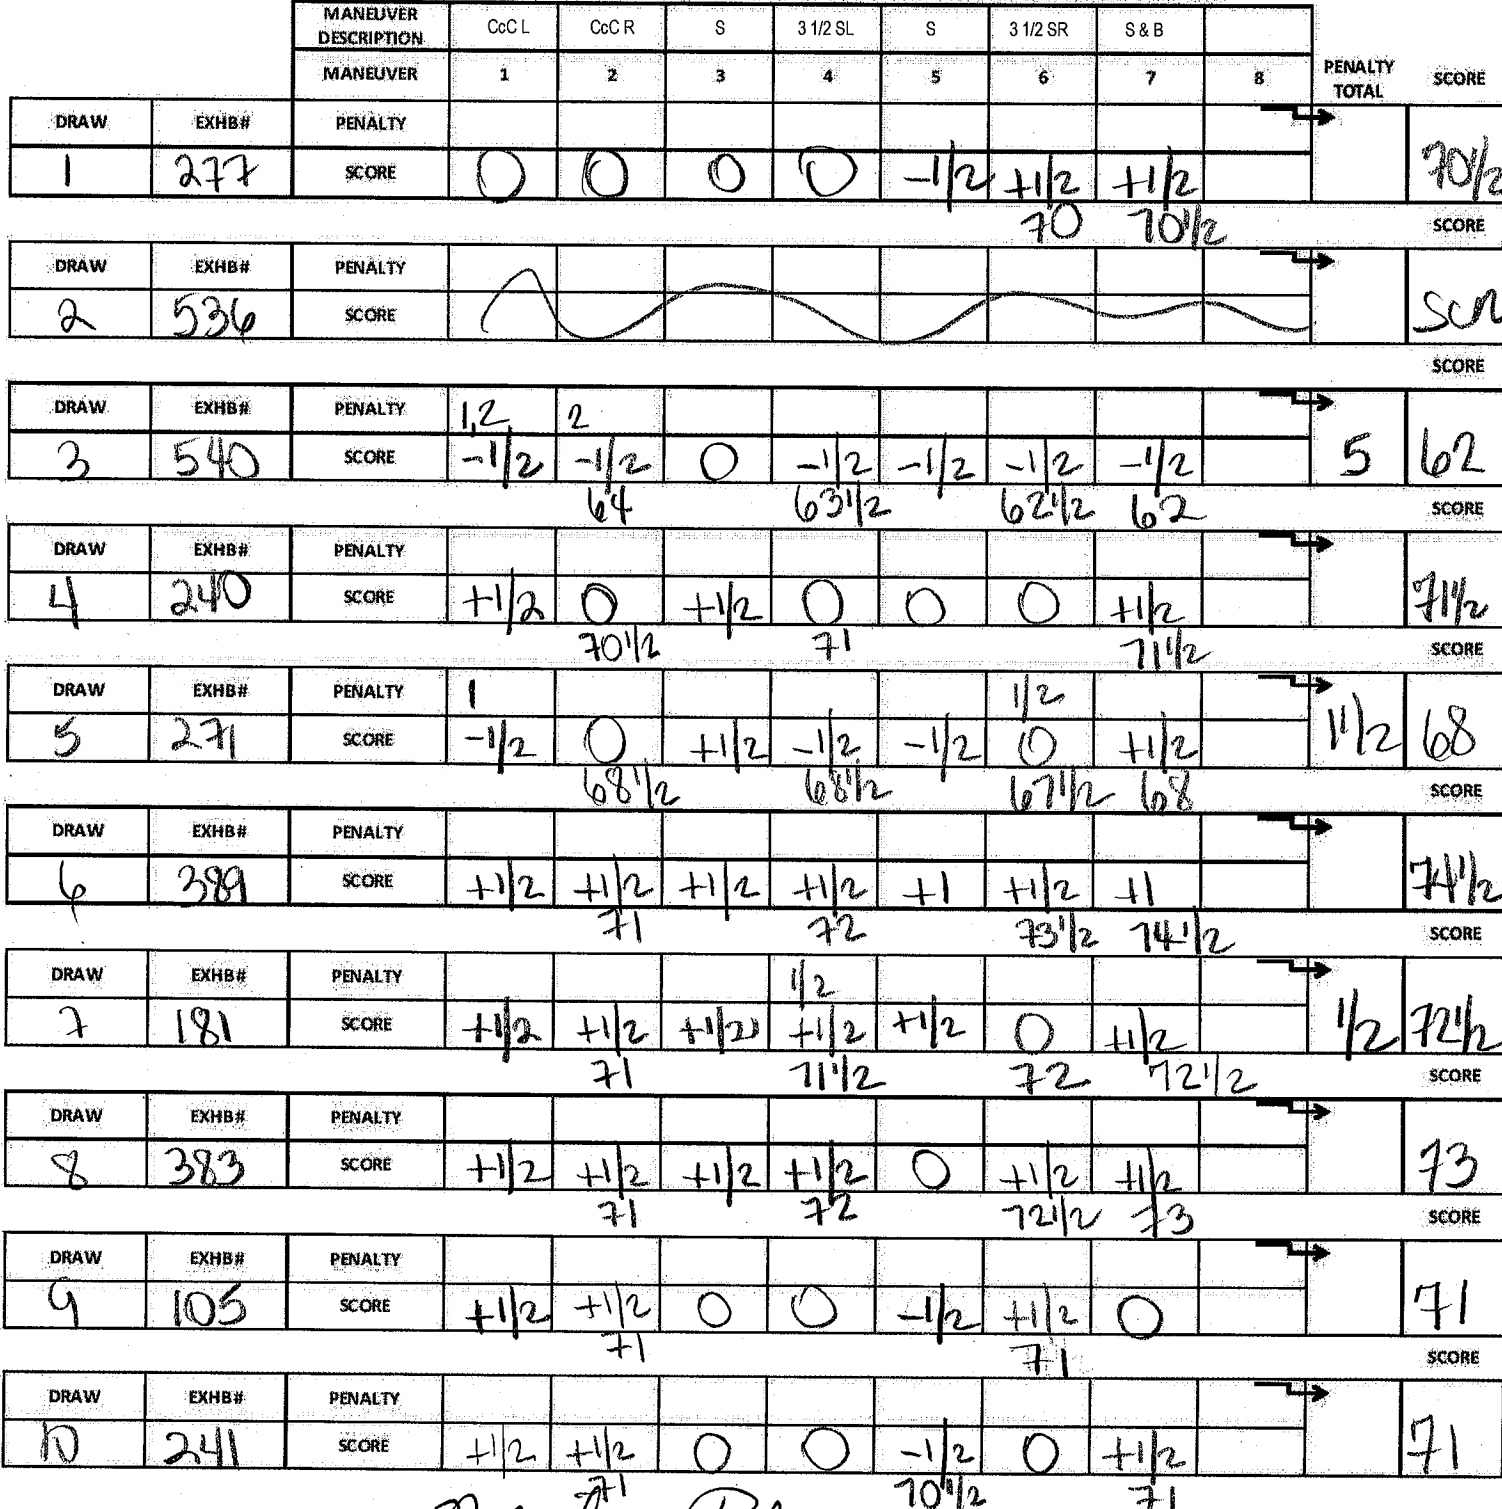 MANEUVER DESCRIPTION CcC L CcC R S 3 1/2 SL S 3 1/2 SR S & B
MANEUVER 1 2 3 4 5 6 7 8 PENALTY TOTAL SCORE
DRAW EXHB# PENALTY
1 277 SCORE 0 0 0 0 -1/2 +1/2 +1/2 70 1/2
70 70 1/2 SCORE
DRAW EXHB# PENALTY
2 536 SCORE SCR
SCORE
DRAW EXHB# PENALTY 1,2 2
3 540 SCORE -1/2 -1/2 0 -1/2 -1/2 -1/2 -1/2 5 62
64 63 1/2 62 1/2 62 SCORE
DRAW EXHB# PENALTY
4 240 SCORE +1/2 0 +1/2 0 0 0 +1/2 71 1/2
70 1/2 71 71 1/2 SCORE
DRAW EXHB# PENALTY 1 1/2
5 271 SCORE -1/2 0 +1/2 -1/2 -1/2 0 +1/2 1 1/2 68
68 1/2 68 1/2 67 1/2 68 SCORE
DRAW EXHB# PENALTY
6 389 SCORE +1/2 +1/2 +1/2 +1/2 +1 +1/2 +1 74 1/2
71 72 73 1/2 74 1/2 SCORE
DRAW EXHB# PENALTY 1/2
7 181 SCORE +1/2 +1/2 +1/2 +1/2 +1/2 0 +1/2 1/2 72 1/2
71 71 1/2 72 72 1/2 SCORE
DRAW EXHB# PENALTY
8 383 SCORE +1/2 +1/2 +1/2 +1/2 0 +1/2 +1/2 73
71 72 72 1/2 73 SCORE
DRAW EXHB# PENALTY
9 105 SCORE +1/2 +1/2 0 0 -1/2 +1/2 0 71
71 71 SCORE
DRAW EXHB# PENALTY
10 241 SCORE +1/2 +1/2 0 0 -1/2 0 +1/2 71
71 70 1/2 71